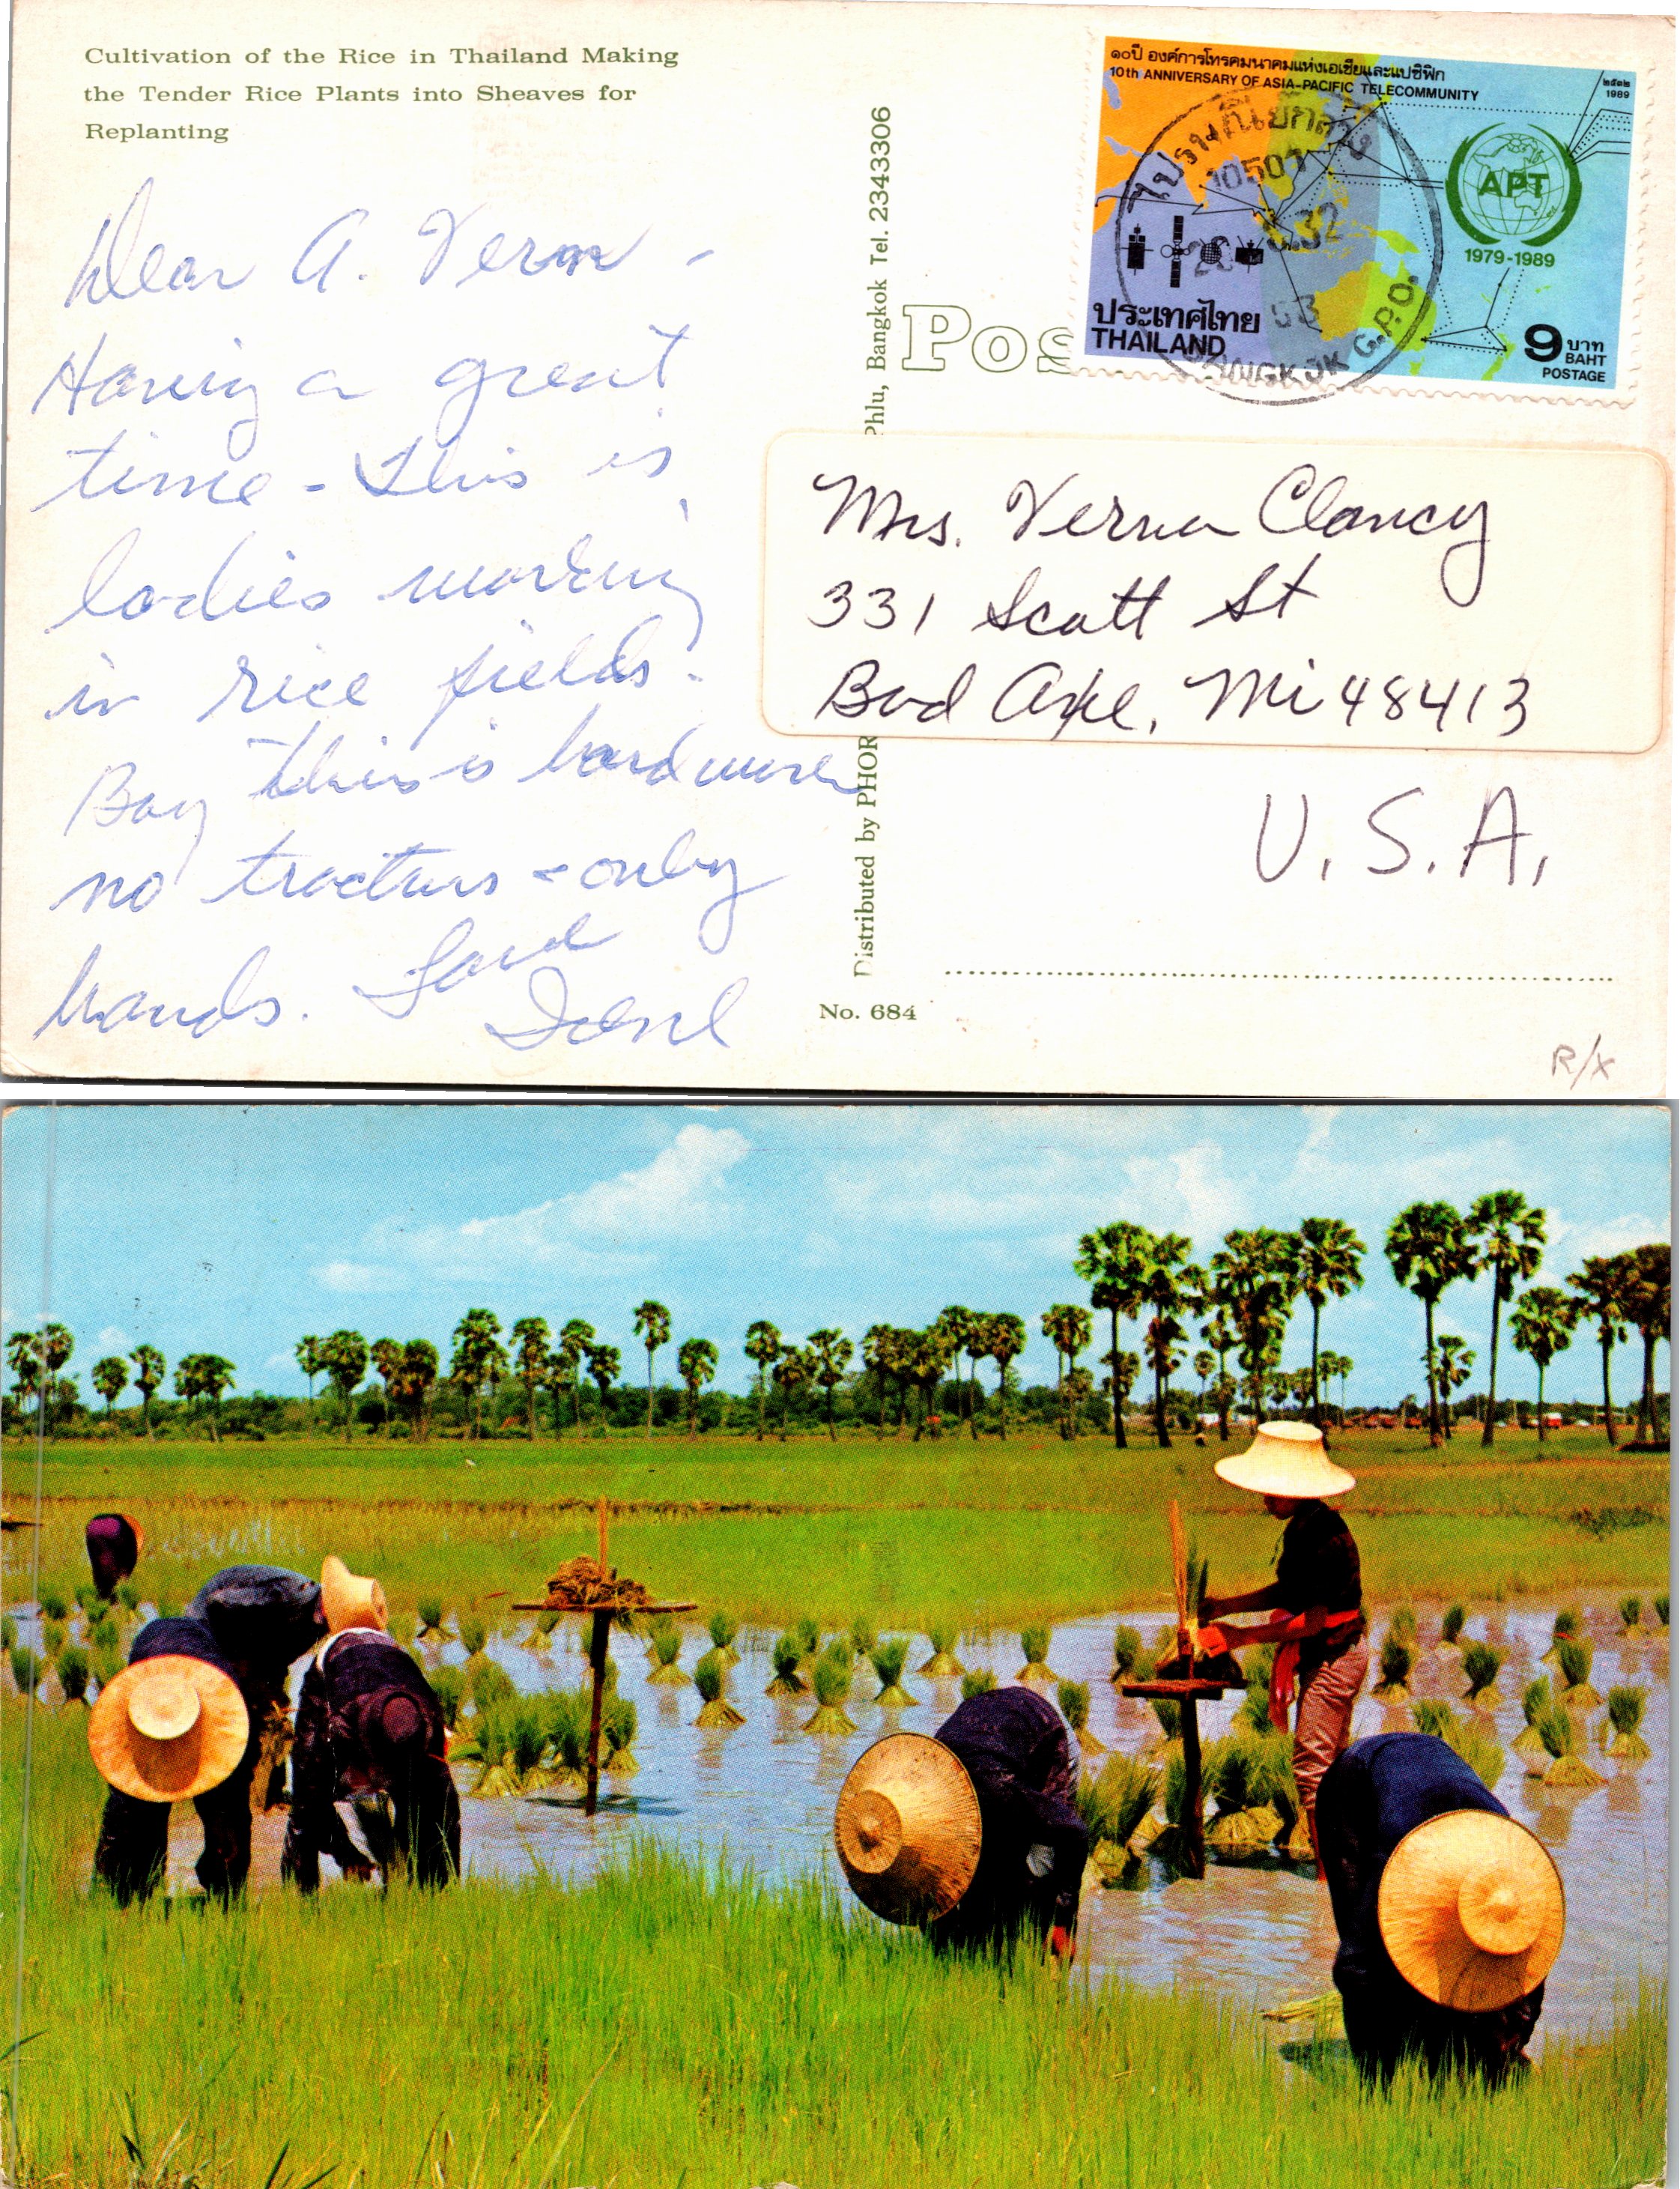 Cultivation of the Rice in Thailand Making
the Tender Rice Plants into Sheaves for
Replanting
Dear A. Verna -
Having a great
time - This is
ladies working
in rice fields.
Boy this is hard work
no tractors - only
hands. Love
Distributed by PHOR
Phlu, Bangkok Tel. 2343306
No. 684
Pos
๑๐ปี องค์การโทรคมนาคมแห่งเอเชียและแปซิฟิก
10th ANNIVERSARY OF ASIA-PACIFIC TELECOMMUNITY
๒๕๓๒
1989
APT
1979-1989
ประเทศไทย
THAILAND
9 บาท
BAHT
POSTAGE
10501
32
BANGKOK G.P.O.
Mrs. Verna Clancy
331 Scott St
Bad Axe, Mi 48413
U.S.A.
R/X